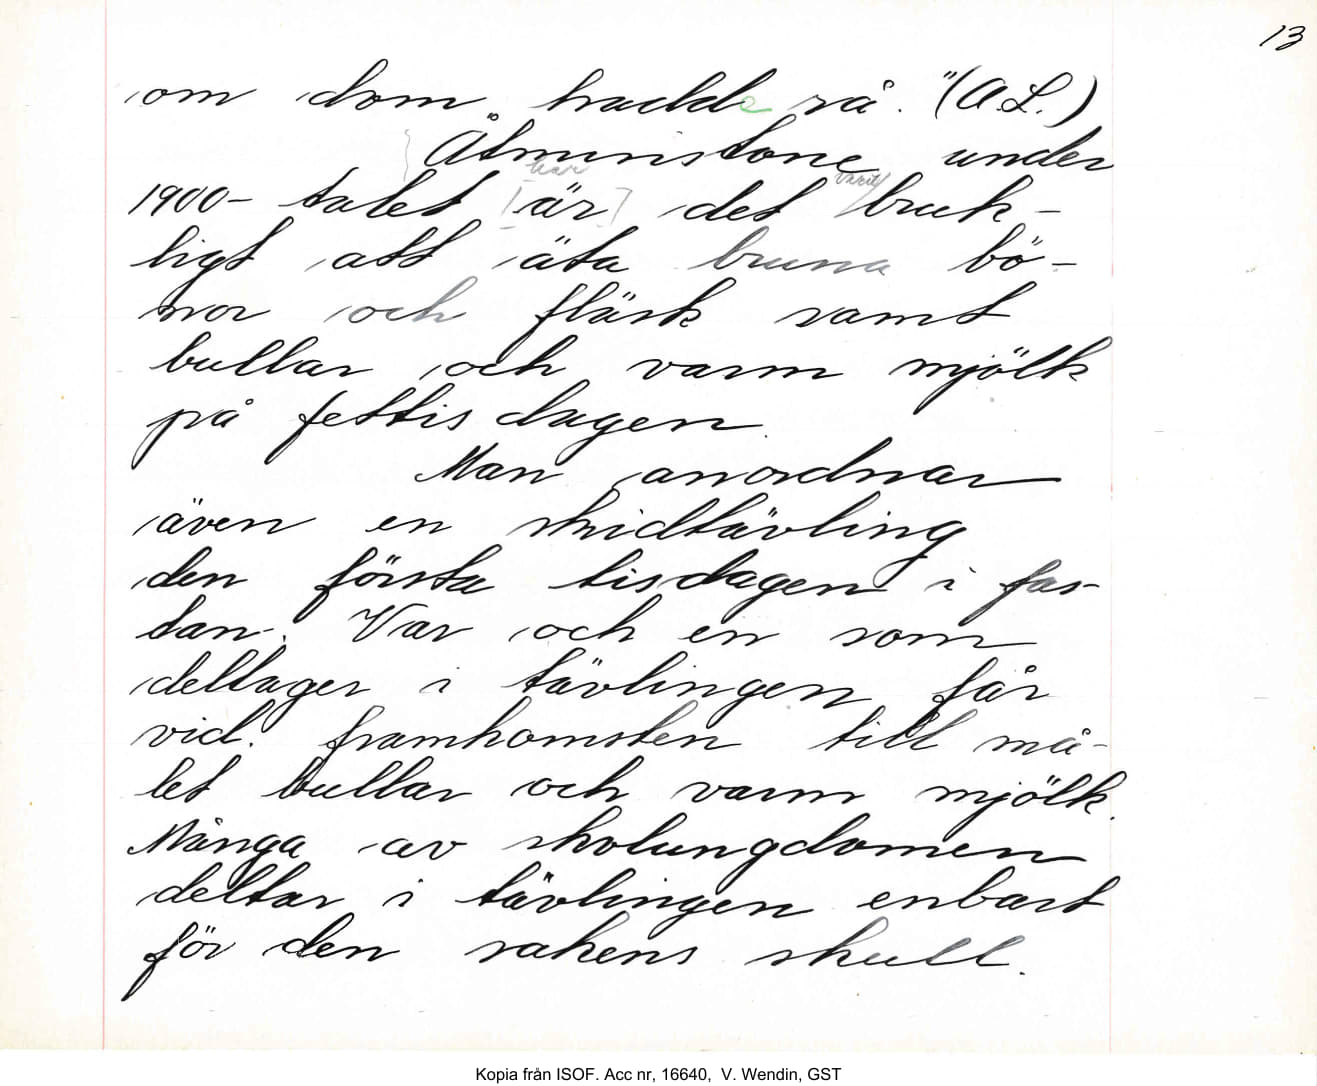 13
om dom hadde så." (A.L.)
Åtminstone under
har varit
1900-talet [är] det bruk-
ligt att äta bruna bö-
nor och fläsk samt
bullar och varm mjölk
på fettisdagen.
Man anordnar
även en skidtävling
den första tisdagen i fas-
tan. Var och en som
deltager i tävlingen får
vid framkomsten till må-
let bullar och varm mjölk.
Många av skolungdomen
deltar i tävlingen enbart
för den sakens skull.
Kopia från ISOF. Acc nr, 16640, V. Wendin, GST